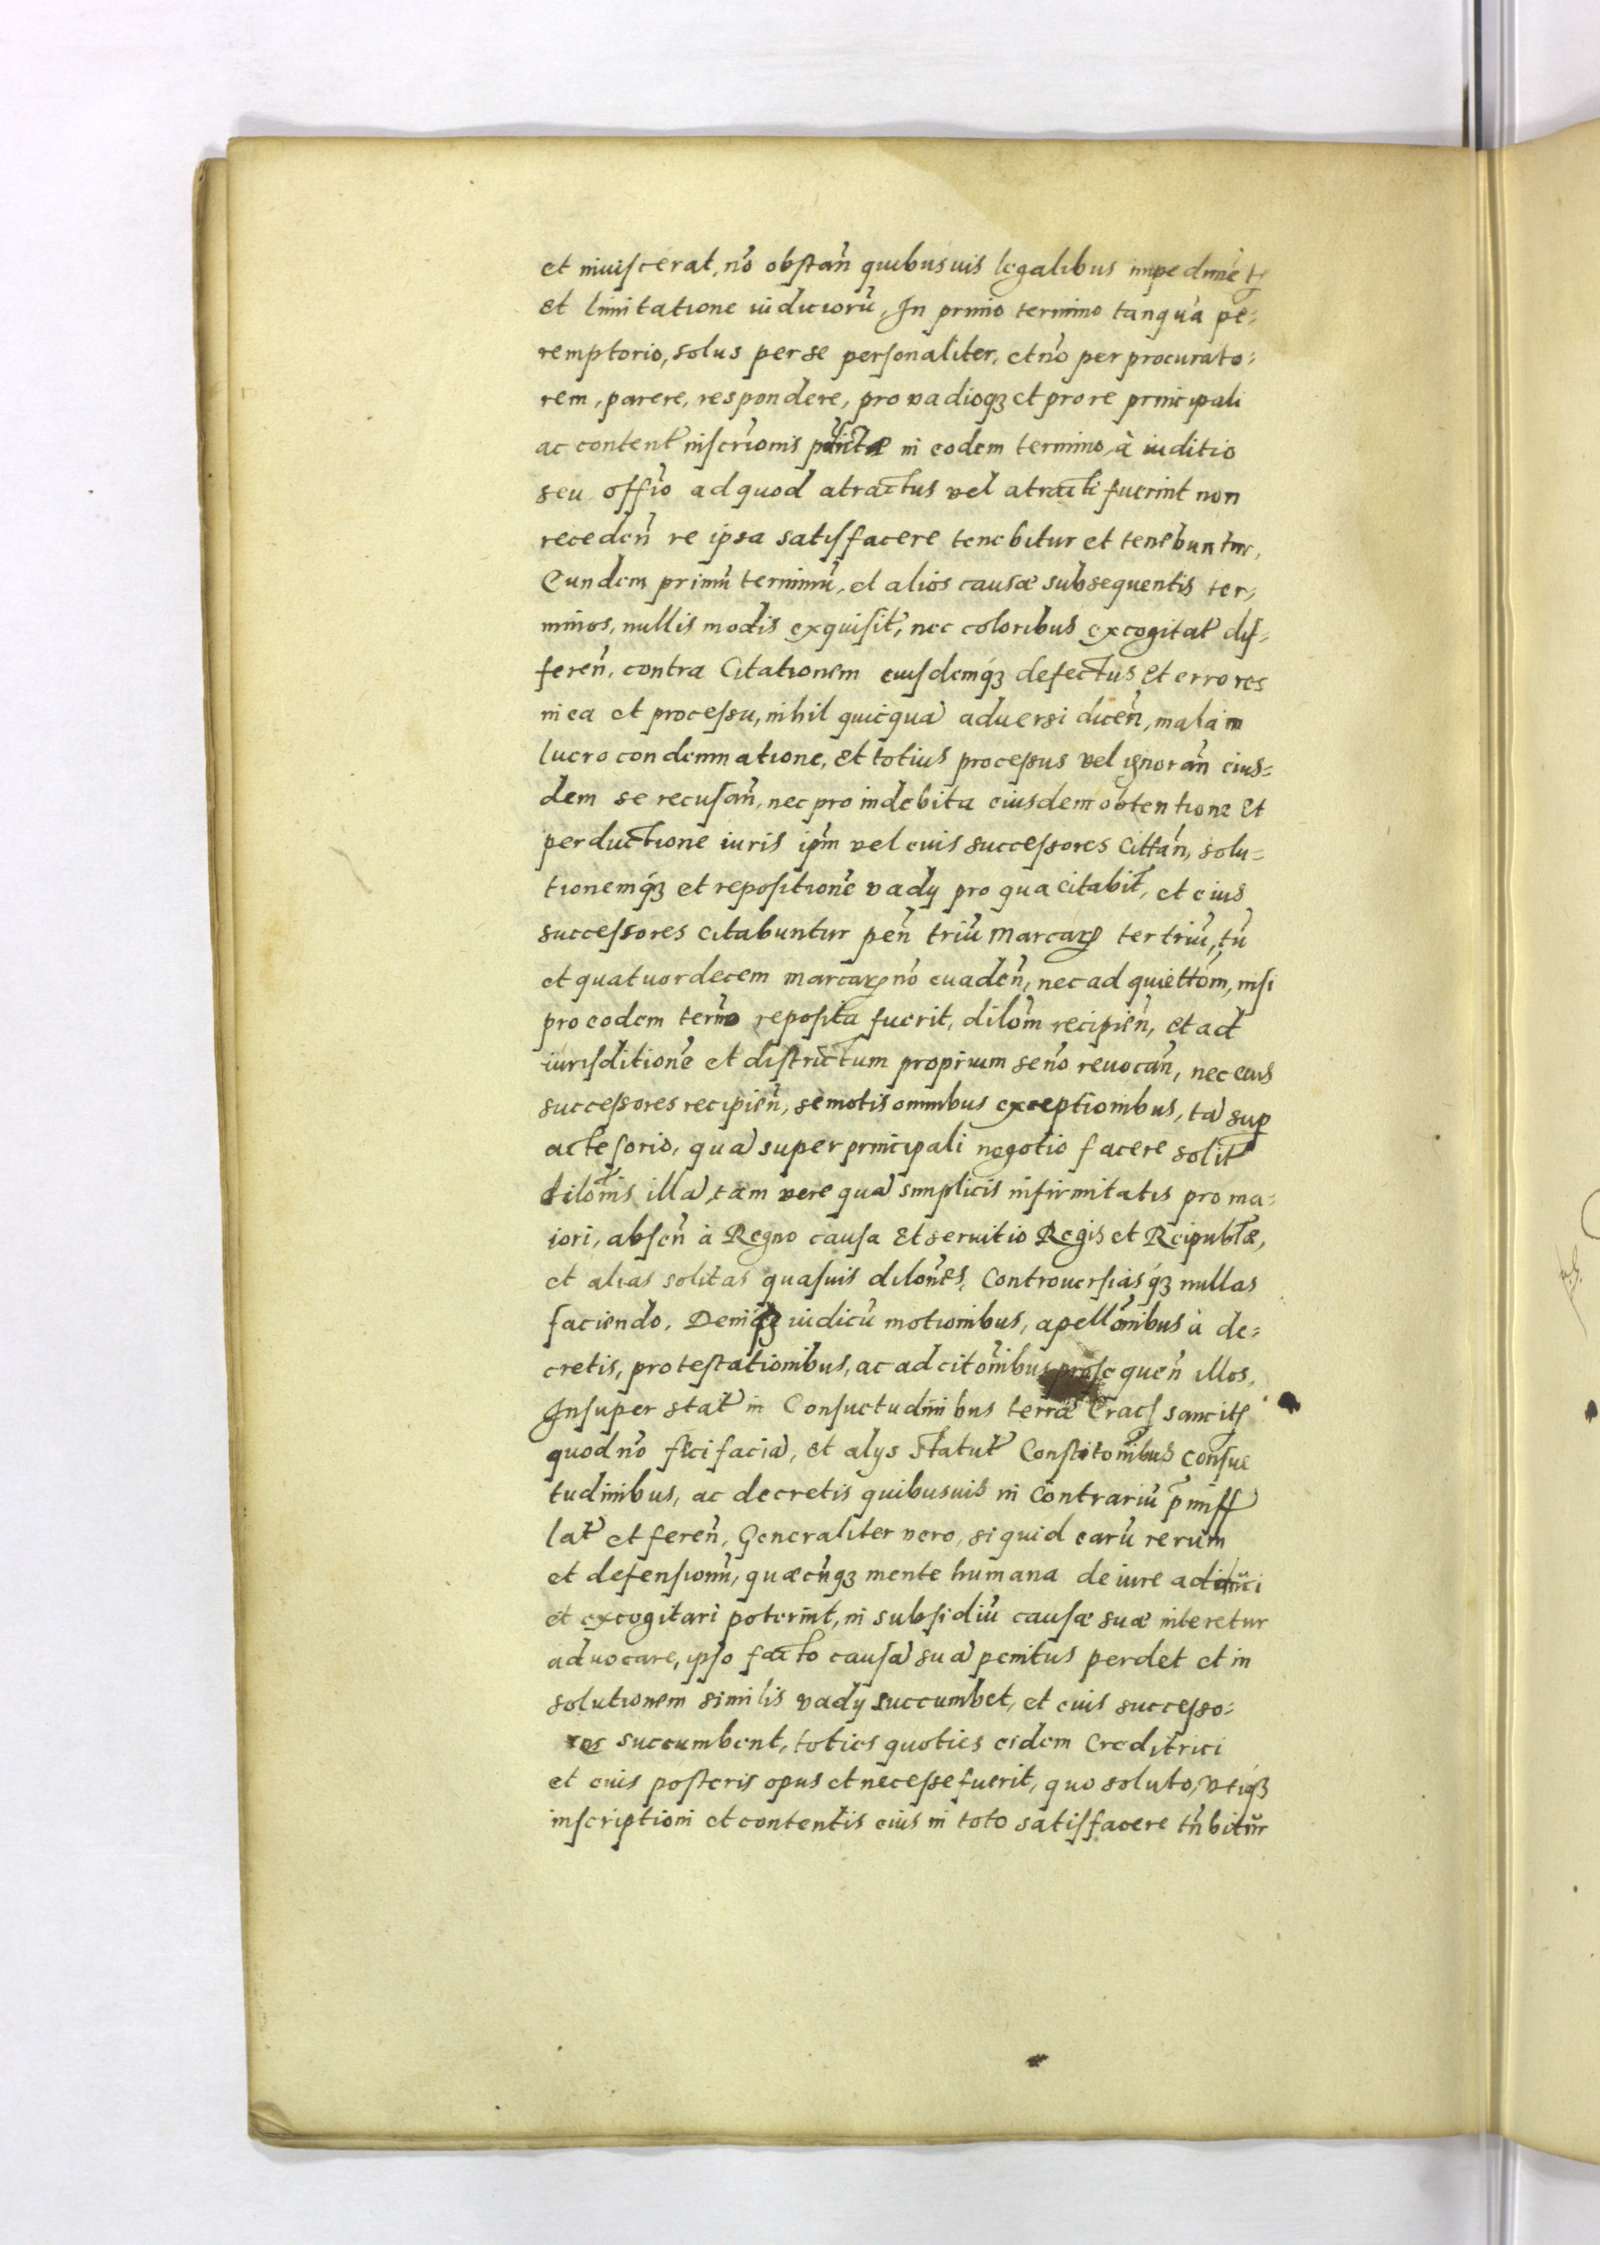 et inuiscerat, nō obstañ quibusuis legalibus impedimēt
et limitatione iudiciorū, In primo termino tanquā pe:
remptorio, solus per se personaliter, et nō per procurato:
rem, parere, respondere, pro vadioqȝ et pro re principali
ac content̃ inscrīonis in eodem termino, à iuditio
seu offīo ad quod atractus vel atracti fuerint non
recedeñ re ipsa satisfacere tenebitur et tenebuntur,
Eundem primū terminū, et alios causæ subsequentis ter:
minos, nullis modis exquisit̃, nec coloribus excogitat̃ dif:
fereñ, contra Citationem eiusdemqȝ defectus et errores
in ea et processu, nihil quicquā aduersi diceñ, mala in
lucro condemnatione, et totius processus vel ignorañ eius=
dem se recusañ, nec pro indebita eiusdem obtentione et
perductione iuris ipm̃ vel eius successores Cittañ, solu=
tionemqȝ et repositionē vadÿ pro qua citabit̃, et eius
successores citabuntur peñ triū Marcarꝝ ter triū, tū
et quatuordecem marcarꝝ nō euadeñ, nec ad quiettōm, nisi
pro eodem term̃o reposita fuerit, dilōm recipieñ, et ad
iurisditionē et districtum proprium se nō reuocañ, nec eius
successores recipieñ, semotis omnibus exceptionibus, tā sup̱
actesorio, quā super principali negotio facere solit̃
dilōnis illā, tam vere quā simplicis infirmitatis pro ma:
iori, abseñ à Regno causa et seruitio Regis et Reipublæ,
et alias solitas quasuis dilōnes, Controuersiasqȝ nullas
faciendo. Deniqȝ iudicū motionibus, apellōnibus à de:
cretis, protestationibus, ac ad citōnibus prosequeñ illos,
Insuper stat̃ in Consuetudinibus terræ Crac sancitꝭ
quod nō fcifaciā, et alÿs statut̃ Constitōnibus consue
tudinibus, ac decretis quibusuis in Contrariū p̄miss
lat̃ et fereñ, Generaliter vero, si quid earū rerum
et defensionū, quæcūqȝ mente humana de iure adduci
et excogitari poterint, in subsidiū causæ suæ niteretur
aduocare, ipso facto causā suā penitus perdet et in
solutionem similis vadÿ succumbet, et eius successo:
res succumbent, toties quoties eidem Creditrici
et eius posteris opus et necesse fuerit, quo soluto, vtiqȝ
inscriptioni et contentis eius in toto satisfacere tñbitur